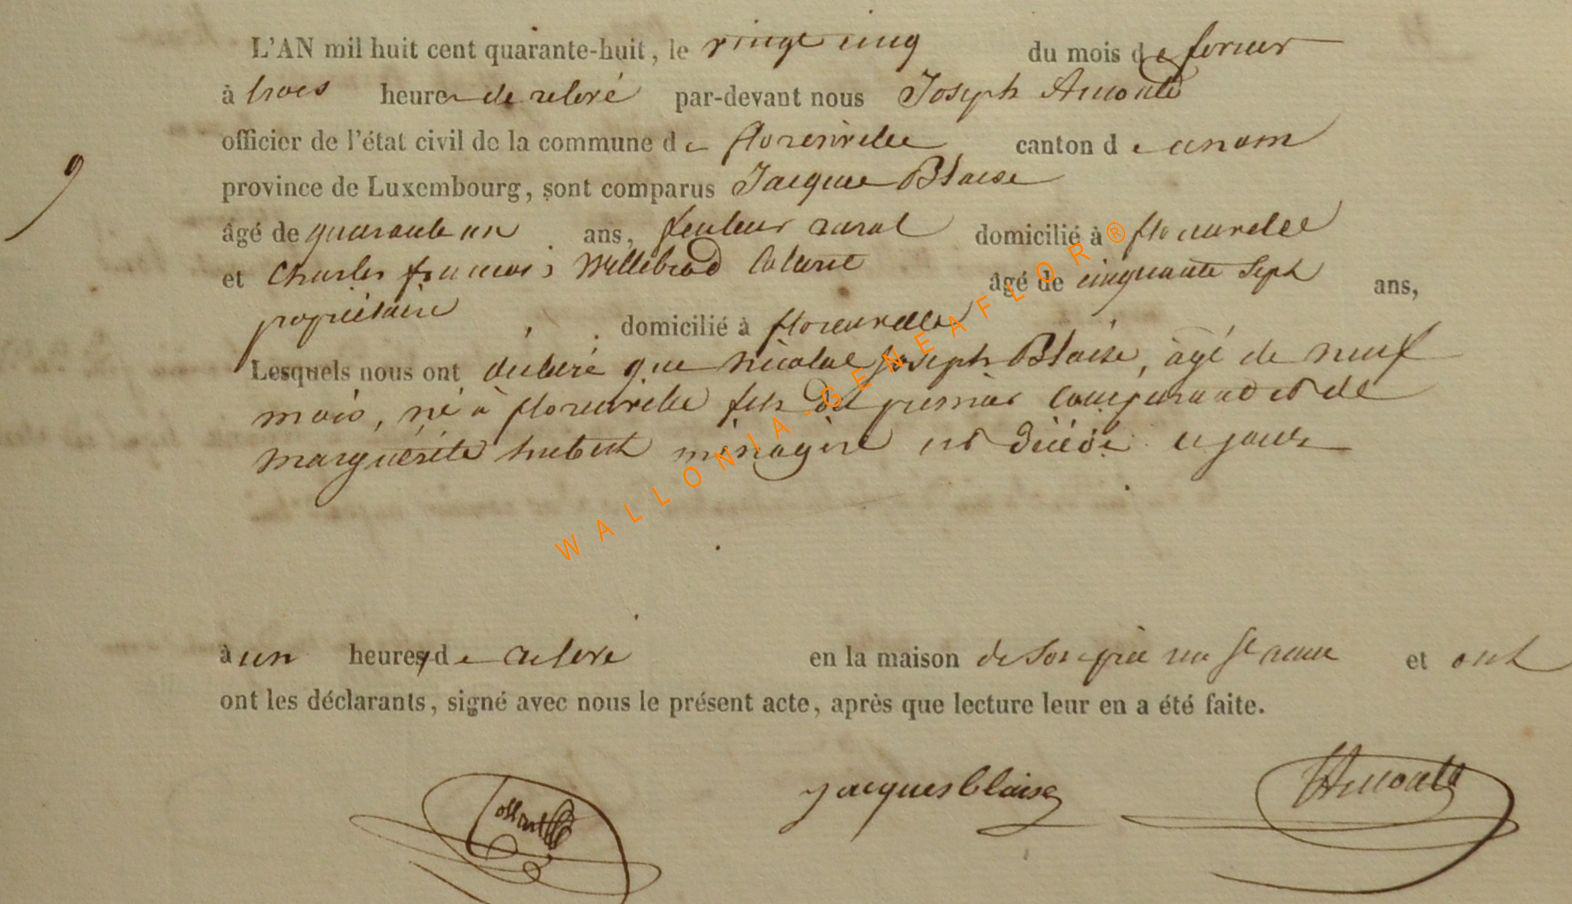 L'AN mil huit cent quarante-huit, le vingt cinq du mois de fevrier
à trois heures de relevé par-devant nous Joseph
officier de l'état civil de la commune de florenville canton de
province de Luxembourg, sont comparus Jacque Blaise
âgé de quarante un ans, rural domicilié à florenville
et Charles françois Willebrod âgé de cinquante sept ans,
propriétaire, domicilié à florenville
Lesquels nous ont déclaré que nicolas Joseph Blaise, âgé de neuf
mois, né à florenville fils du premier comparand et de
marguérite hubert ménagère est décédé ce jour
à un heures de relevé en la maison de son père et ont
ont les déclarants, signé avec nous le présent acte, après que lecture leur en a été faite.
jacques blaise
WALLONIA-GENEAFLOR®
9